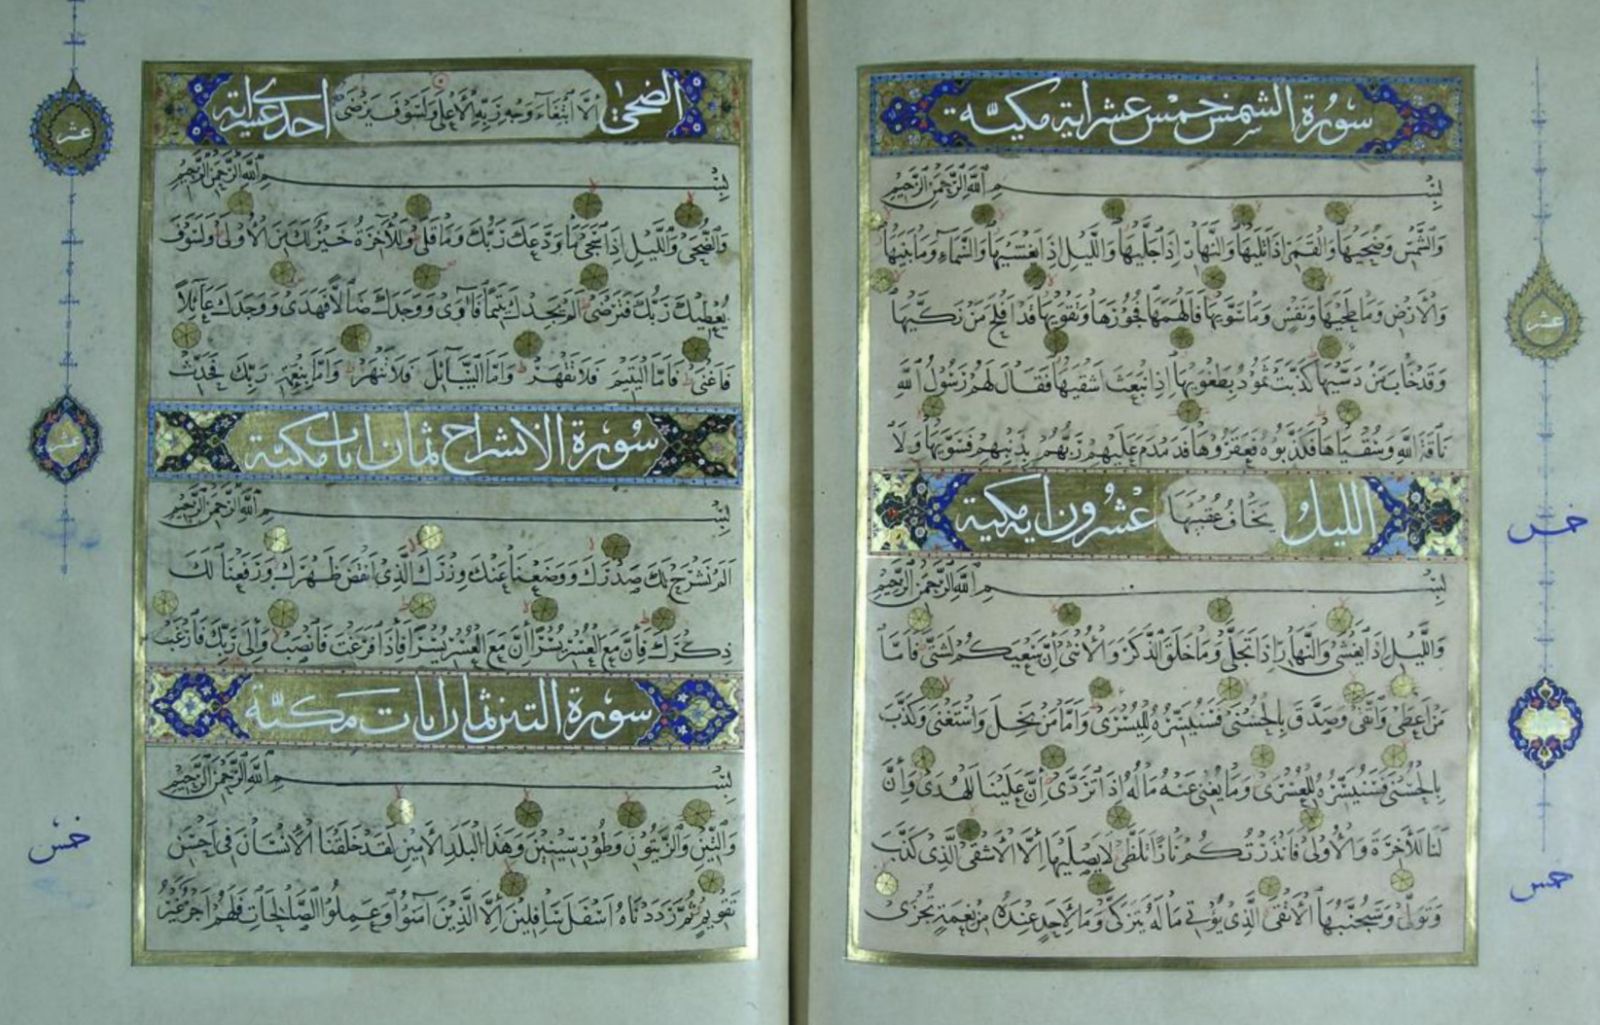 سورة الشمس خمس عشر اية مكية
بسم الله الرحمن الرحيم
والشمس وضحيها والقمر اذا تليها والنهار اذا جليها والليل اذا يغشيها والسماء وما بنيها
والارض وما طحيها ونفس وما سويها فالهمها فجورها وتقويها قد افلح من زكيها
وقد خاب من دسيها كذبت ثمود بطغويها اذ انبعث اشقيها فقال لهم رسول الله
ناقة الله وسقياها فكذبوه فعقروها فدمدم عليهم ربهم بذنبهم فسويها ولا
يخاف عقبيها
الليل عشرون اية مكية
بسم الله الرحمن الرحيم
والليل اذا يغشى والنهار اذا تجلى وما خلق الذكر والانثى ان سعيكم لشتى فاما
من اعطى واتقى وصدق بالحسنى فسنيسره لليسرى واما من بخل واستغنى وكذب
بالحسنى فسنيسره للعسرى وما يغنى عنه ماله اذا تردى ان علينا للهدى وان
لنا للاخرة والاولى فانذرتكم نارا تلظى لا يصليها الا الاشقى الذى كذب
وتولى وسيجنبها الاتقى الذى يؤتى ماله يتزكى وما لاحد عنده من نعمة تجزى
عشر
خمس
خمس
الا ابتغاء وجه ربه الاعلى ولسوف يرضى
الضحى احدى عشر اية
بسم الله الرحمن الرحيم
والضحى والليل اذا سجى ما ودعك ربك وما قلى وللاخرة خير لك من الاولى ولسوف
يعطيك ربك فترضى الم يجدك يتيما فاوى ووجدك ضالا فهدى ووجدك عائلا
فاغنى فاما اليتيم فلا تقهر واما السائل فلا تنهر واما بنعمة ربك فحدث
سورة الانشراح ثمان ايات مكية
بسم الله الرحمن الرحيم
الم نشرح لك صدرك ووضعنا عنك وزرك الذى انقض ظهرك ورفعنا لك
ذكرك فان مع العسر يسرا ان مع العسر يسرا فاذا فرغت فانصب والى ربك فارغب
سورة التين ثمان ايات مكية
بسم الله الرحمن الرحيم
والتين والزيتون وطور سينين وهذا البلد الامين لقد خلقنا الانسان فى احسن
تقويم ثم رددناه اسفل سافلين الا الذين امنوا وعملوا الصالحات فلهم اجر غير
عشر
عشر
خمس